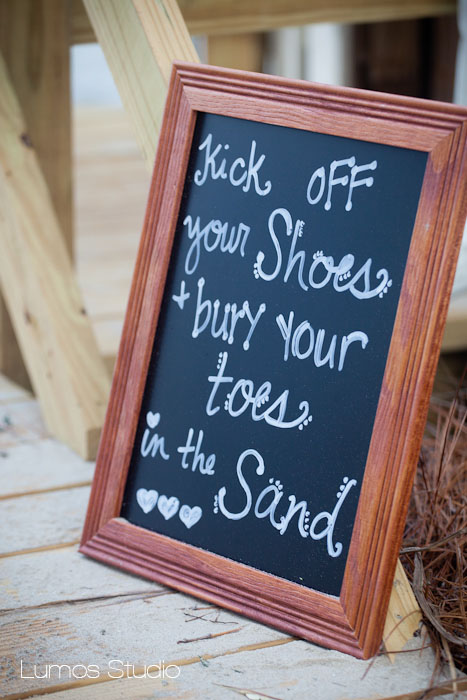 Kick OFF
your Shoes
+ bury your
toes
in the Sand
Lumos Studio